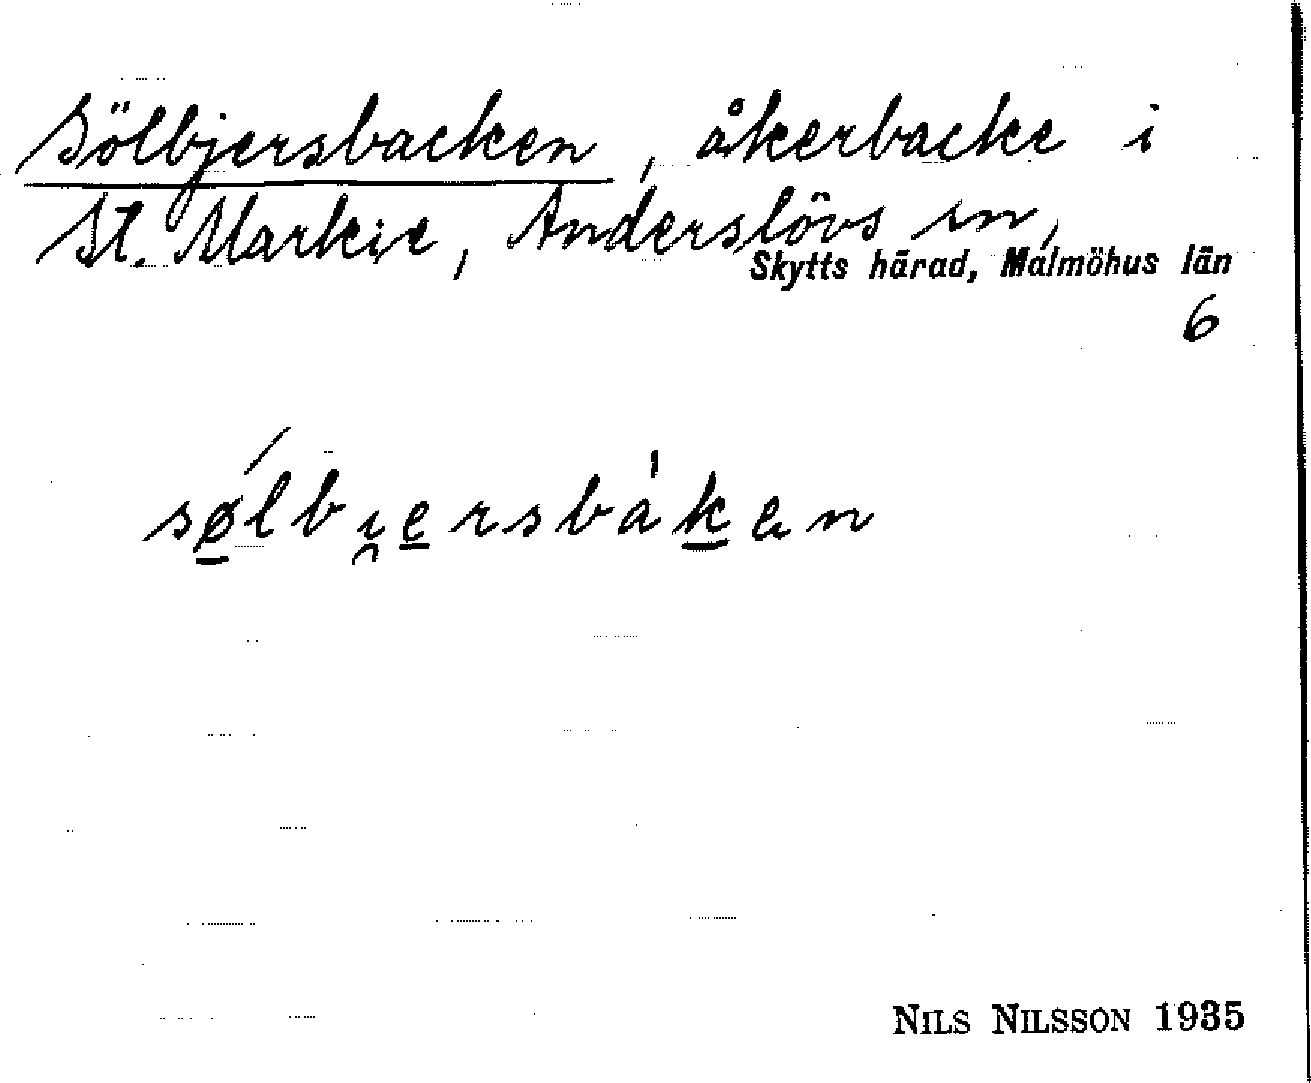 Sölbjersbacken, åkerbacke i
St. Markie, Anderslövs sn,
Skytts härad, Malmöhus län
6
sølbi̯ersbakən
NILS NILSSON 1935